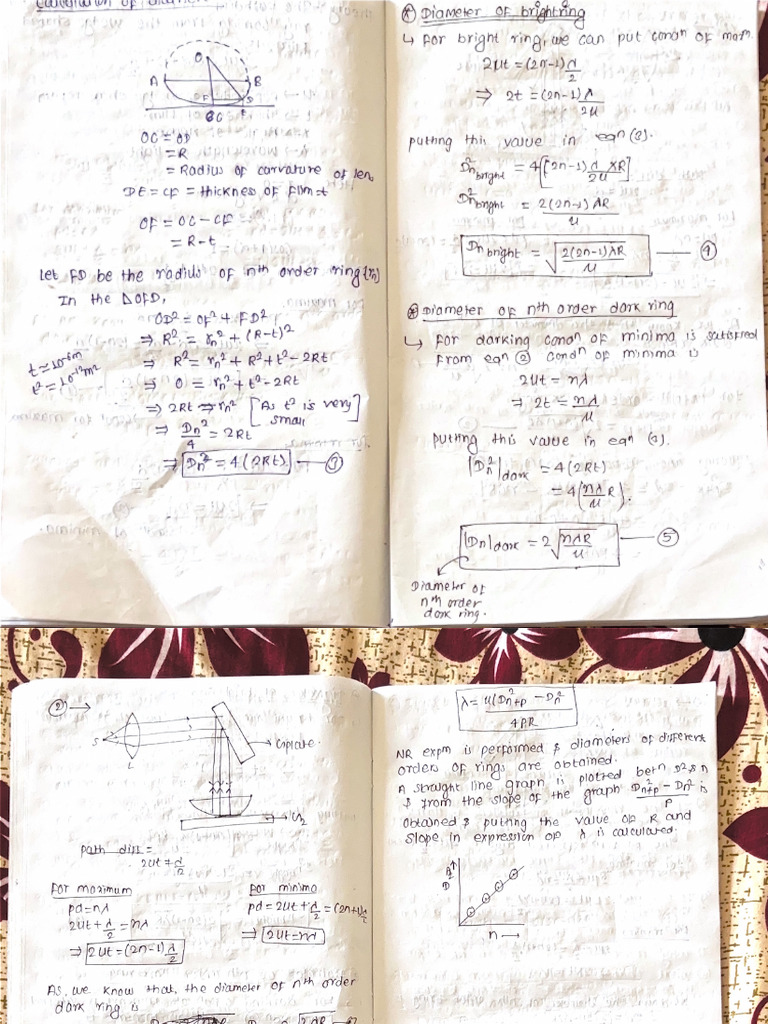 O
A
B
F
S
C
OC = OD
= R
= Radius of carvature of len
DE = CF = thicknes of film = t
OF = OC - CF
= R - t
Let FD be the radius of nth order ring (rn)
In the △OFD,
OD² = OF² + FD²
⇒ R² = rn² + (R-t)²
t = 10⁻⁶m
t² = 10⁻¹²m²
⇒ R² = rn² + R² + t² - 2Rt
⇒ 0 = rn² + t² - 2Rt
⇒ 2Rt ⇒ rn² [As t² is very small]
⇒ Dn²/4 = 2Rt
⇒ Dn² = 4(2Rt)
Diameter of bright ring
↳ For bright ring, we can put condn of max
2ut = (2n-1)λ/2
⇒ 2t = (2n-1)λ/2u
putting this value in eqn (3).
Dn² bright = 4[(2n-1)λ/2u XR]
Dn² bright = 2(2n-1)λR/u
Dn bright = √2(2n-1)λR/u — ④
Diameter of nth order dark ring
↳ For darking condn of minima is satisfied
From eqn ② condn of minima is
2ut = nλ
⇒ 2t = nλ/u
putting this value in eqn (3).
|Dn²|dark = 4(2Rt)
= 4(nλ/u R).
|Dn|dark = 2√nλR/u — ⑤
Diameter of
nth order
dark ring.
②→
S
L
G plate.
path diff =
2ut + λ/2
For maximum
pd = nλ
2ut + λ/2 = nλ
⇒ 2ut = (2n-1)λ/2
For minima
pd = 2ut + λ/2 = (2n+1)λ/2
⇒ 2ut = nλ
As, we know that, the diameter of nth order
dark ring is
λ = u(D²n+p - Dn²)/4PR
NR expm is performed & diameters of different
orders of rings are obtained.
A straight line graph is plotted betn D² & n
& from the slope of the graph D²n+p - Dn²/P is
obtained & putting the value of R and
slope, in expression of λ is calculated.
D²
n →